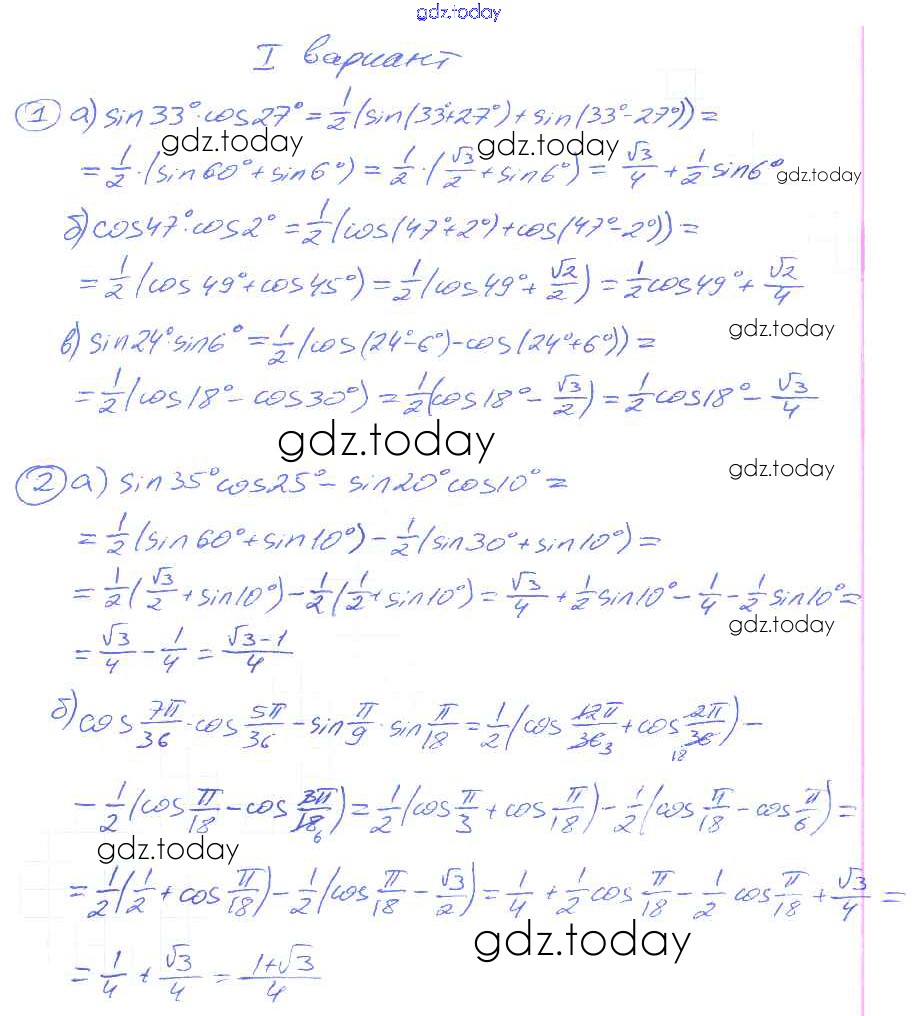 gdz.today
I вариант
1 а) sin33°·cos27° = 1/2(sin(33°+27°)+sin(33°-27°)) =
gdz.today gdz.today
= 1/2·(sin60°+sin6°) = 1/2·(√3/2+sin6°) = √3/4 + 1/2 sin6°
gdz.today
б) cos47°·cos2° = 1/2(cos(47°+2°)+cos(47°-2°)) =
= 1/2(cos49°+cos45°) = 1/2(cos49°+√2/2) = 1/2 cos49° + √2/4
gdz.today
в) sin24°·sin6° = 1/2(cos(24°-6°)-cos(24°+6°)) =
= 1/2(cos18° - cos30°) = 1/2(cos18° - √3/2) = 1/2 cos18° - √3/4
gdz.today
gdz.today
2 а) sin35°cos25° - sin20°cos10° =
= 1/2(sin60°+sin10°) - 1/2(sin30°+sin10°) =
= 1/2(√3/2+sin10°) - 1/2(1/2+sin10°) = √3/4 + 1/2 sin10° - 1/4 - 1/2 sin10° =
gdz.today
= √3/4 - 1/4 = (√3-1)/4
б) cos 7π/36 · cos 5π/36 - sin π/9 · sin π/18 = 1/2(cos 12π/36 3 + cos 2π/36 18) -
- 1/2(cos π/18 - cos 3π/18 6) = 1/2(cos π/3 + cos π/18) - 1/2(cos π/18 - cos π/6) =
gdz.today
= 1/2(1/2 + cos π/18) - 1/2(cos π/18 - √3/2) = 1/4 + 1/2 cos π/18 - 1/2 cos π/18 + √3/4 =
gdz.today
= 1/4 + √3/4 = (1+√3)/4